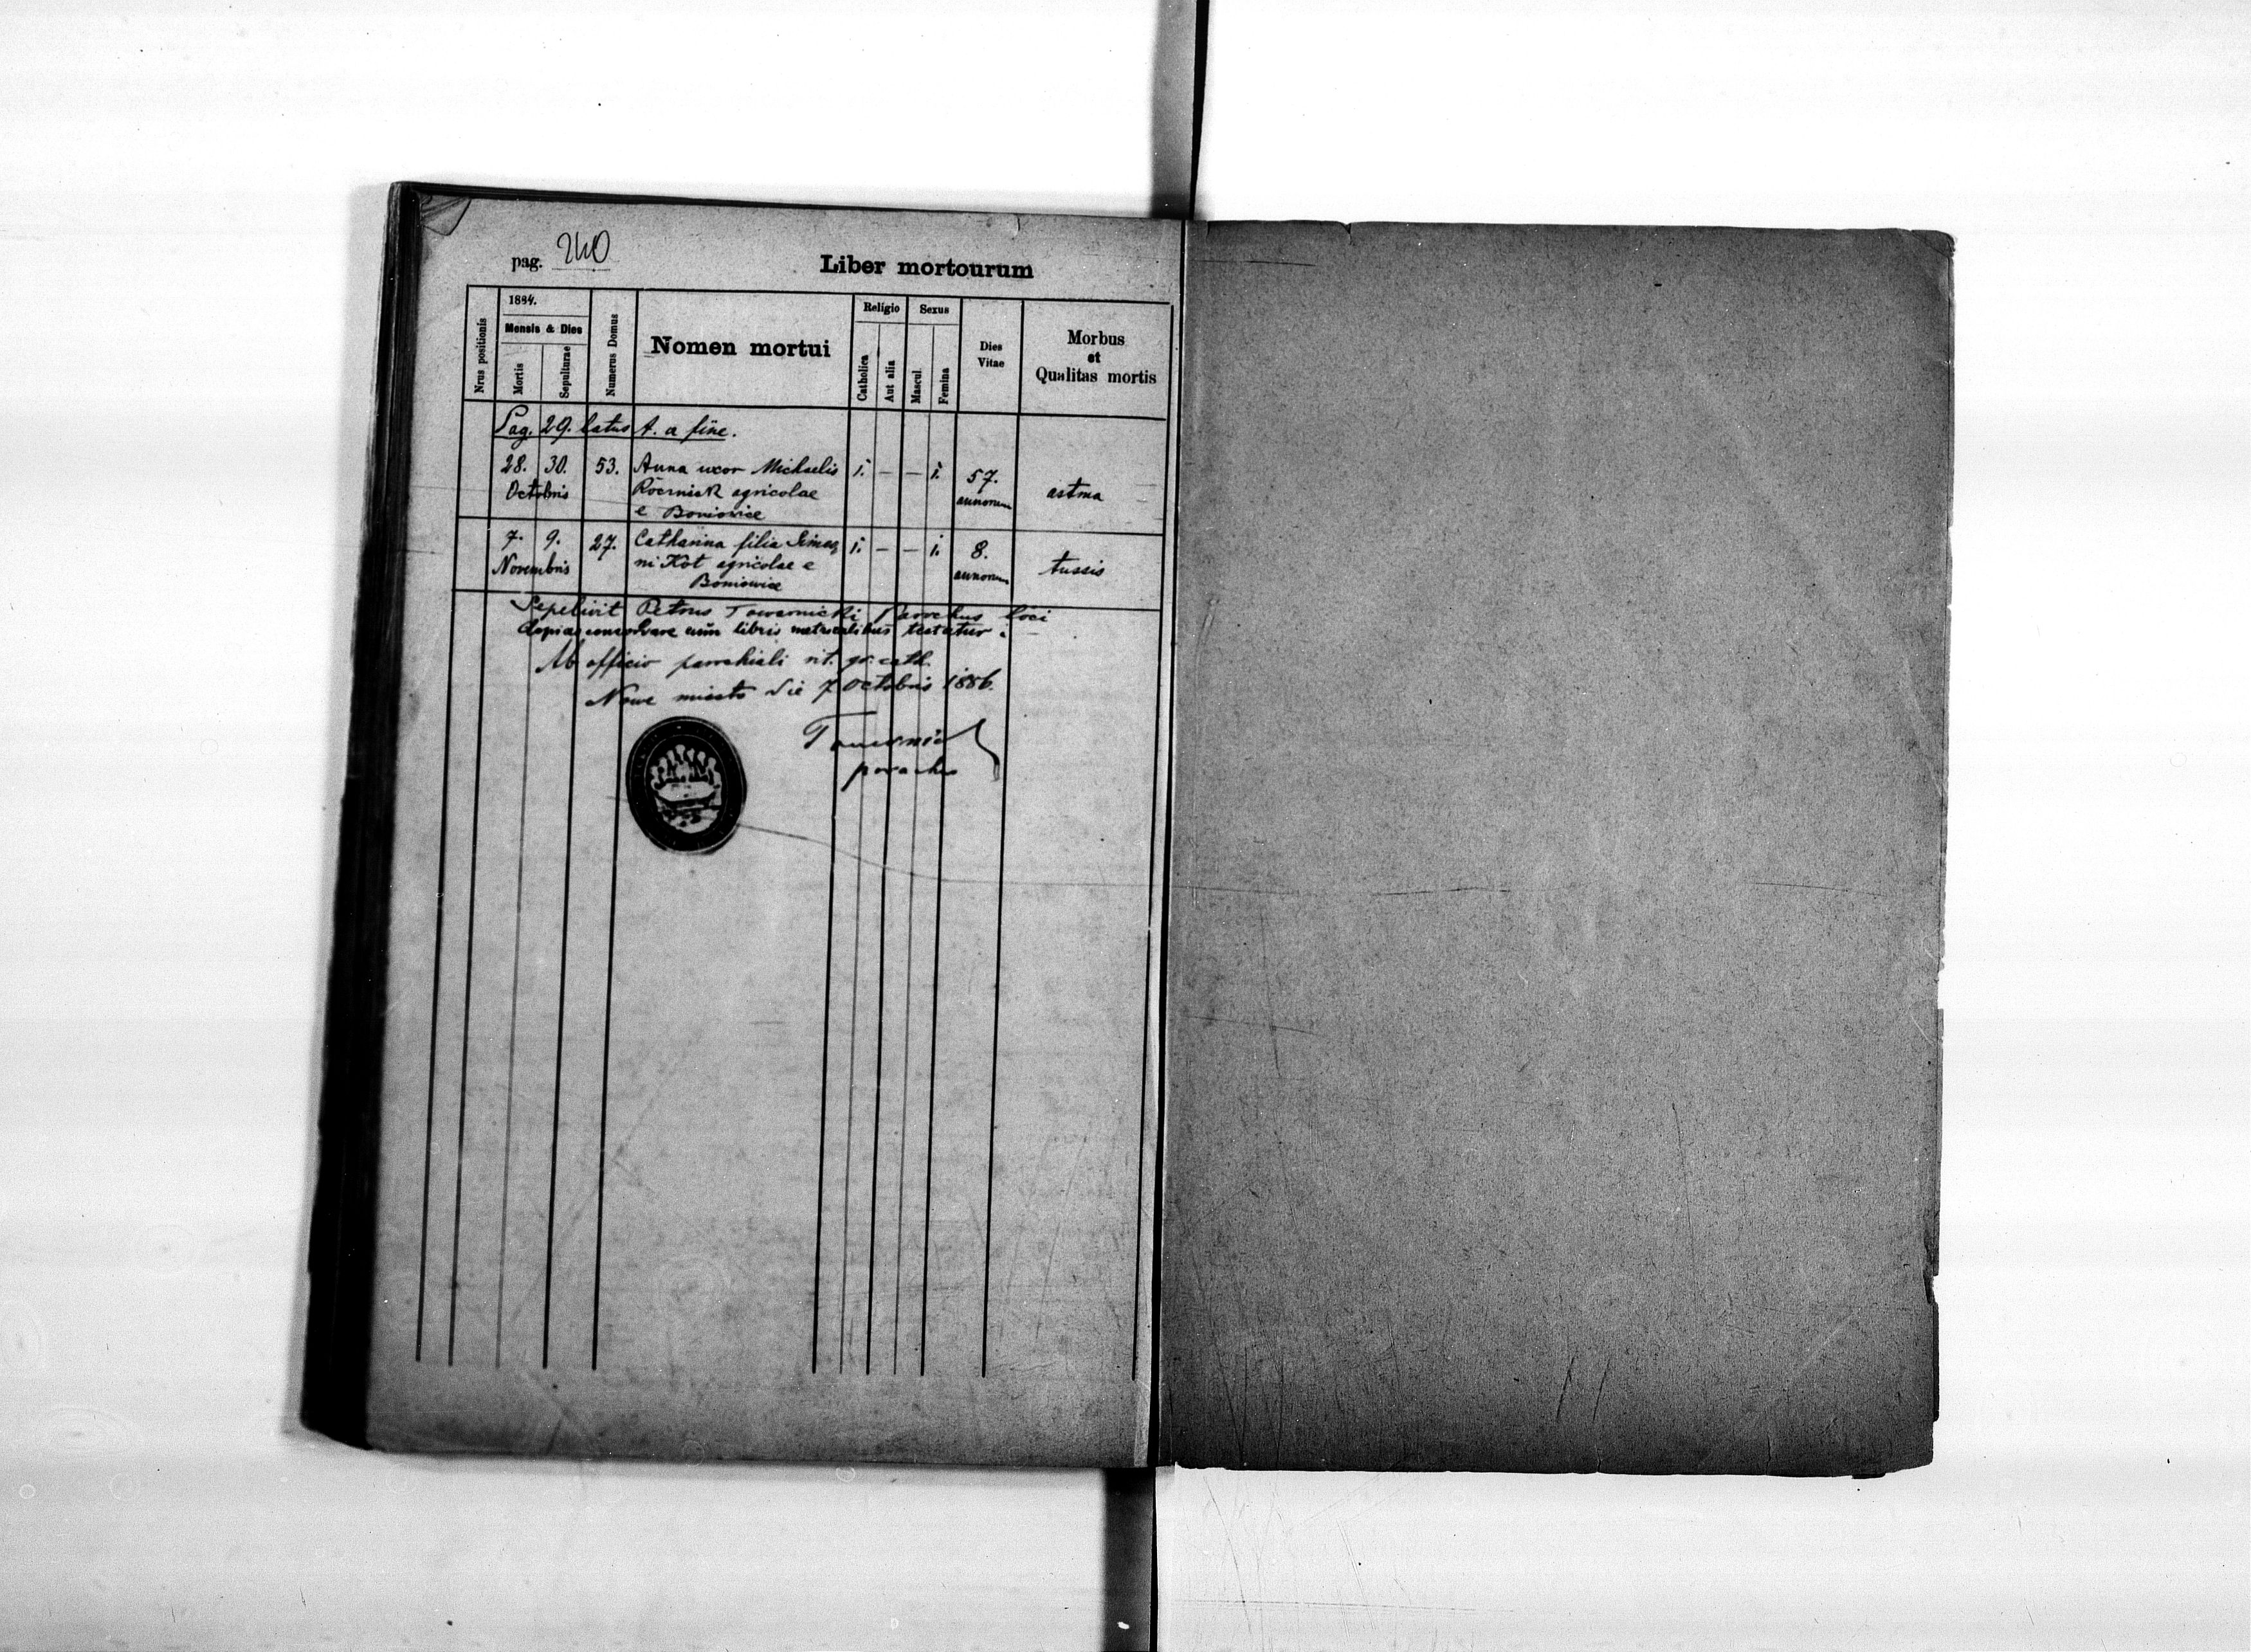 pag. 240
Liber mortourum
Nrus positionis
1884.
Mensis & Dies
Mortis
Sepulturae
Numerus Domus
Nomen mortui
Religio
Catholica
Aut alia
Sexus
Mascul.
Femina
Dies
Vitae
Morbus
et
Qualitas mortis
Pag. 29. latus A. a fine.
28. 30. 53. Anna uxor Michaelis 1. — — 1. 57.
Octobris agricolae annorum astma
e Boniowice
7. 9. 27. Catharina filia Simeo 1. — — 1. 8.
Novembris ni Kot agricolae e annorum tussis
Boniowice
Sepelivit Petrus Towarnicki parochus loci
Copias concordare cum libris metricalibus testatur
Ab officio parochiali rit. gr. cath.
Nowe miasto die 7 Octobris 1886.
Towarnicki
parochus